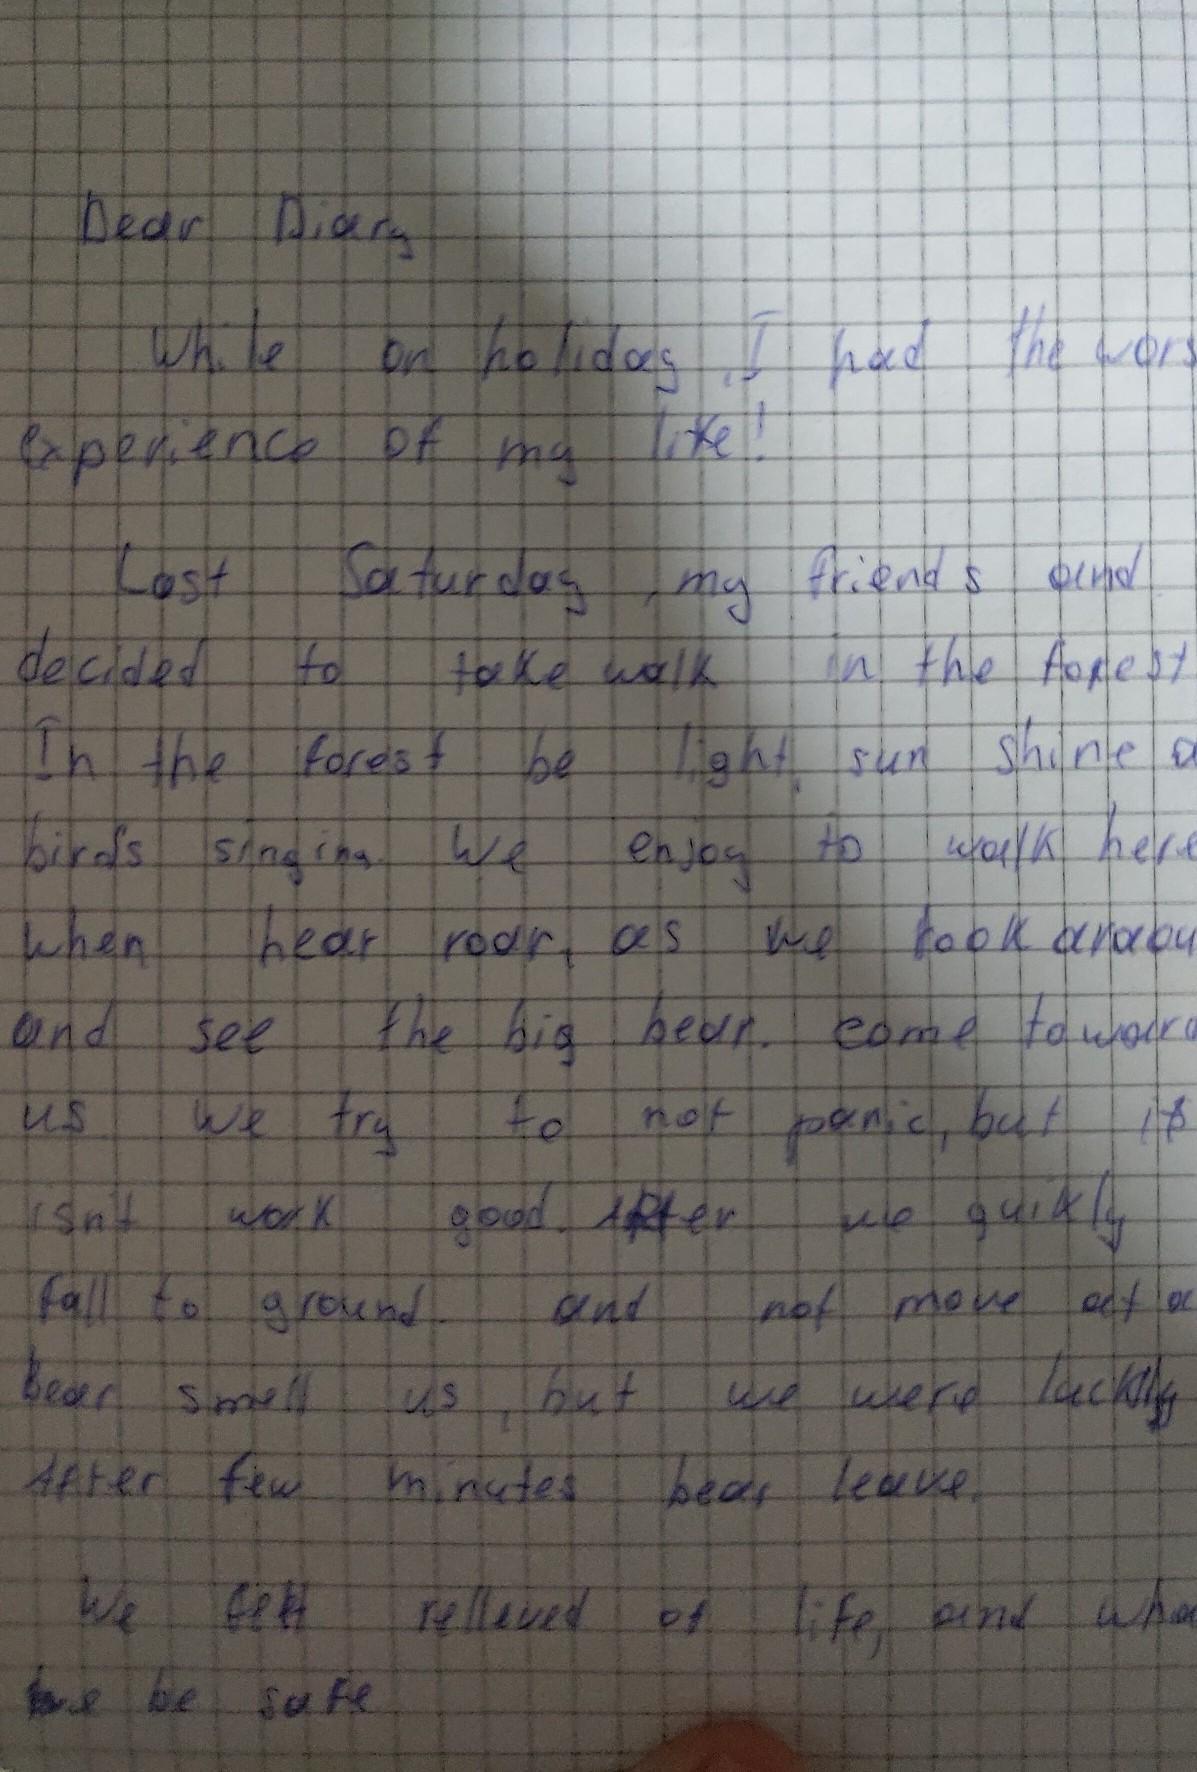 Dear Diary
While on holiday, I had the wors
experience of my life!
Last Saturday, my friends and
decided to take walk in the forest
In the forest be light, sun shine a
birds singing. We enjoy to walk here
when hear roar, as we look araou
and see the big bear. come toward
us. we try to not panic, but it
isn't work good. After we quikly
fall to ground. and not move at a
bear smell us, but we were luckily
After few minutes bear leave.
We felt relleved of life, and wha
we be safe